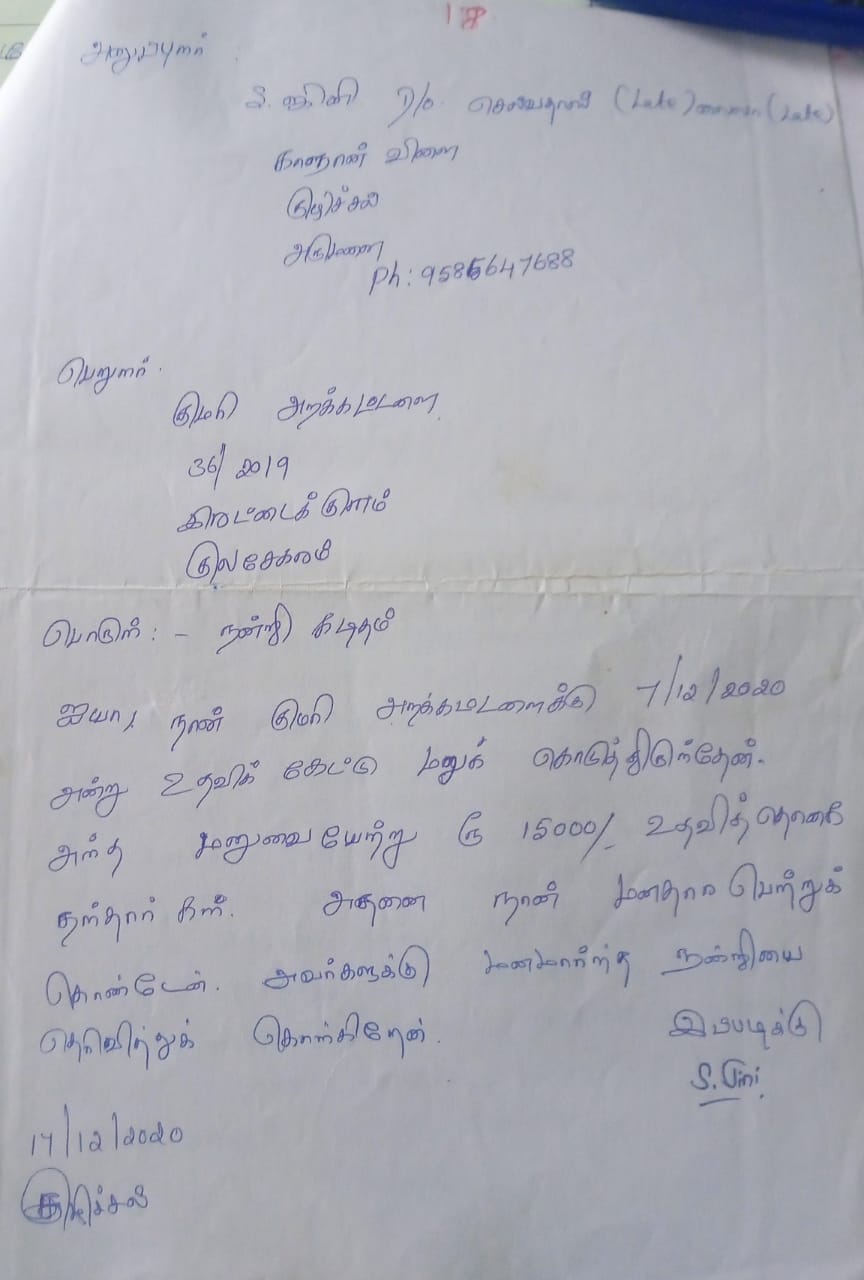 18
அனுப்புனர் :
S. ஜினி D/o. செல்வதாஸ் (Late) (Late)
காளான் விளை
குழிச்சல்
அருமனை
Ph: 9585647688
பெறுனர்.
குமரி அறக்கட்டளை
36/2019
இரட்டைக் குளம்
குலசேகரம்
பொருள் : - நன்றி கடிதம்
ஐயா, நான் குமரி அறக்கட்டளைக்கு 7/12/2020
அன்று உதவிக் கேட்டு மனுக் கொடுத்திருந்தேன்.
அந்த மனுவையேற்று ரூ 15000/- உதவித்தொகை
தந்தார்கள். அதனை நான் மனதார பெற்றுக்
கொண்டேன். அவர்களுக்கு மனமார்ந்த நன்றியை
தெரிவித்துக் கொள்கிறேன். இப்படிக்கு
S. Jini
17/12/2020
குழிச்சல்